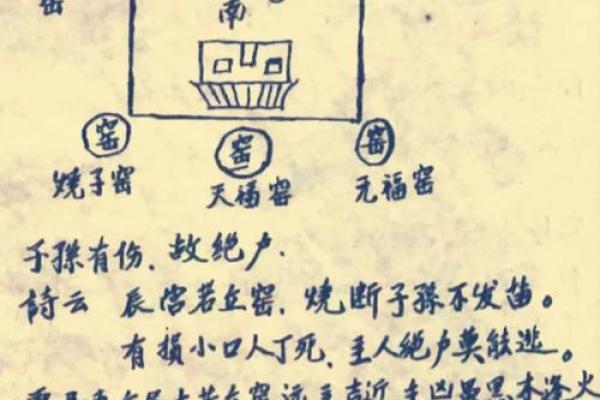 窑
南
窑 窑 窑
烧子窑 天福窑 元福窑
子孫有伤、故绝户.
詩云 辰宫若丘窑,烧断子孫不发苗。
有損小口人丁死,主人絶户莫能逃。
窑远主吉近主凶